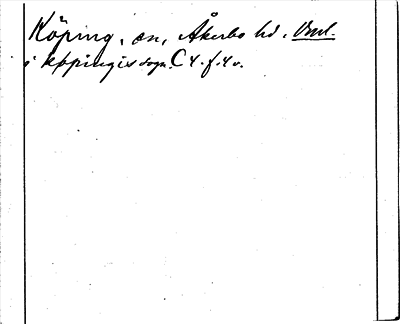 Köping, sn, Åkerbo hd. Vml.
i køpingis sogn. C 4. f. 4 v.